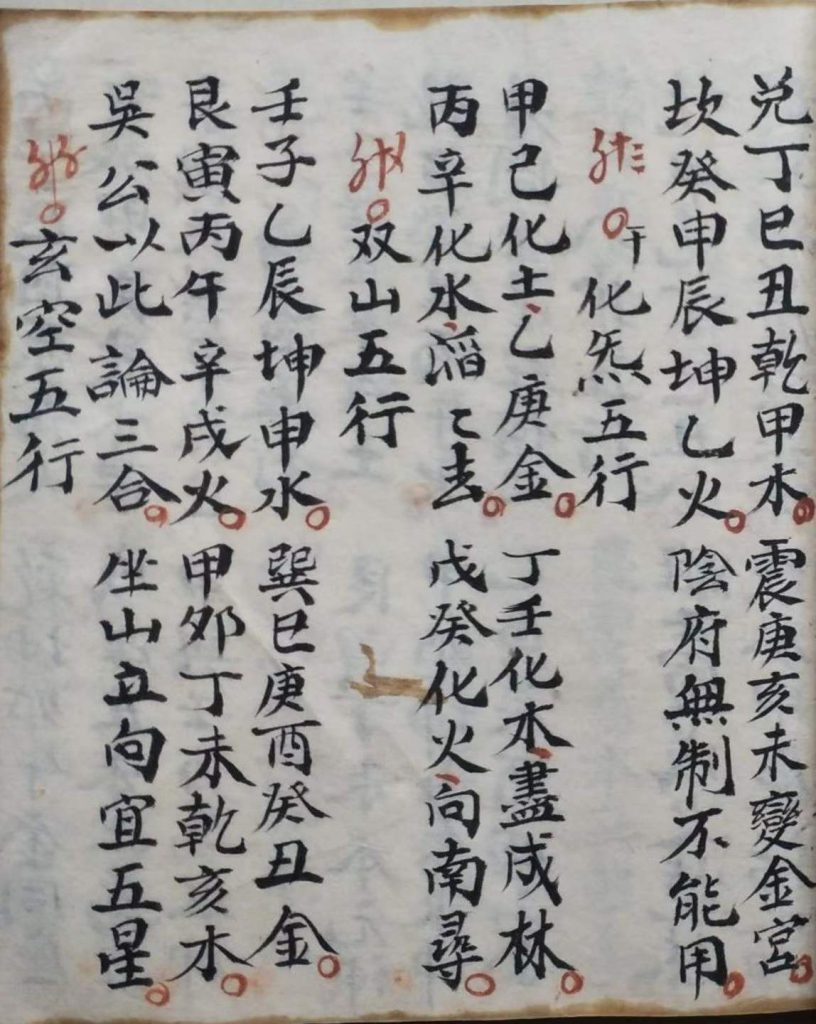 兑丁巳丑乾甲木 震庚亥未變金宮
坎癸申辰坤乙火 陰府無制不能用
干化炁五行
甲己化土乙庚金 丁壬化木盡成林
丙辛化水滔々去 戊癸化火向南尋
双山五行
壬子乙辰坤申水 巽巳庚酉癸丑金
艮寅丙午辛戌火 甲卯丁未乾亥木
吳公以此論三合 坐山立向宜五星
玄空五行